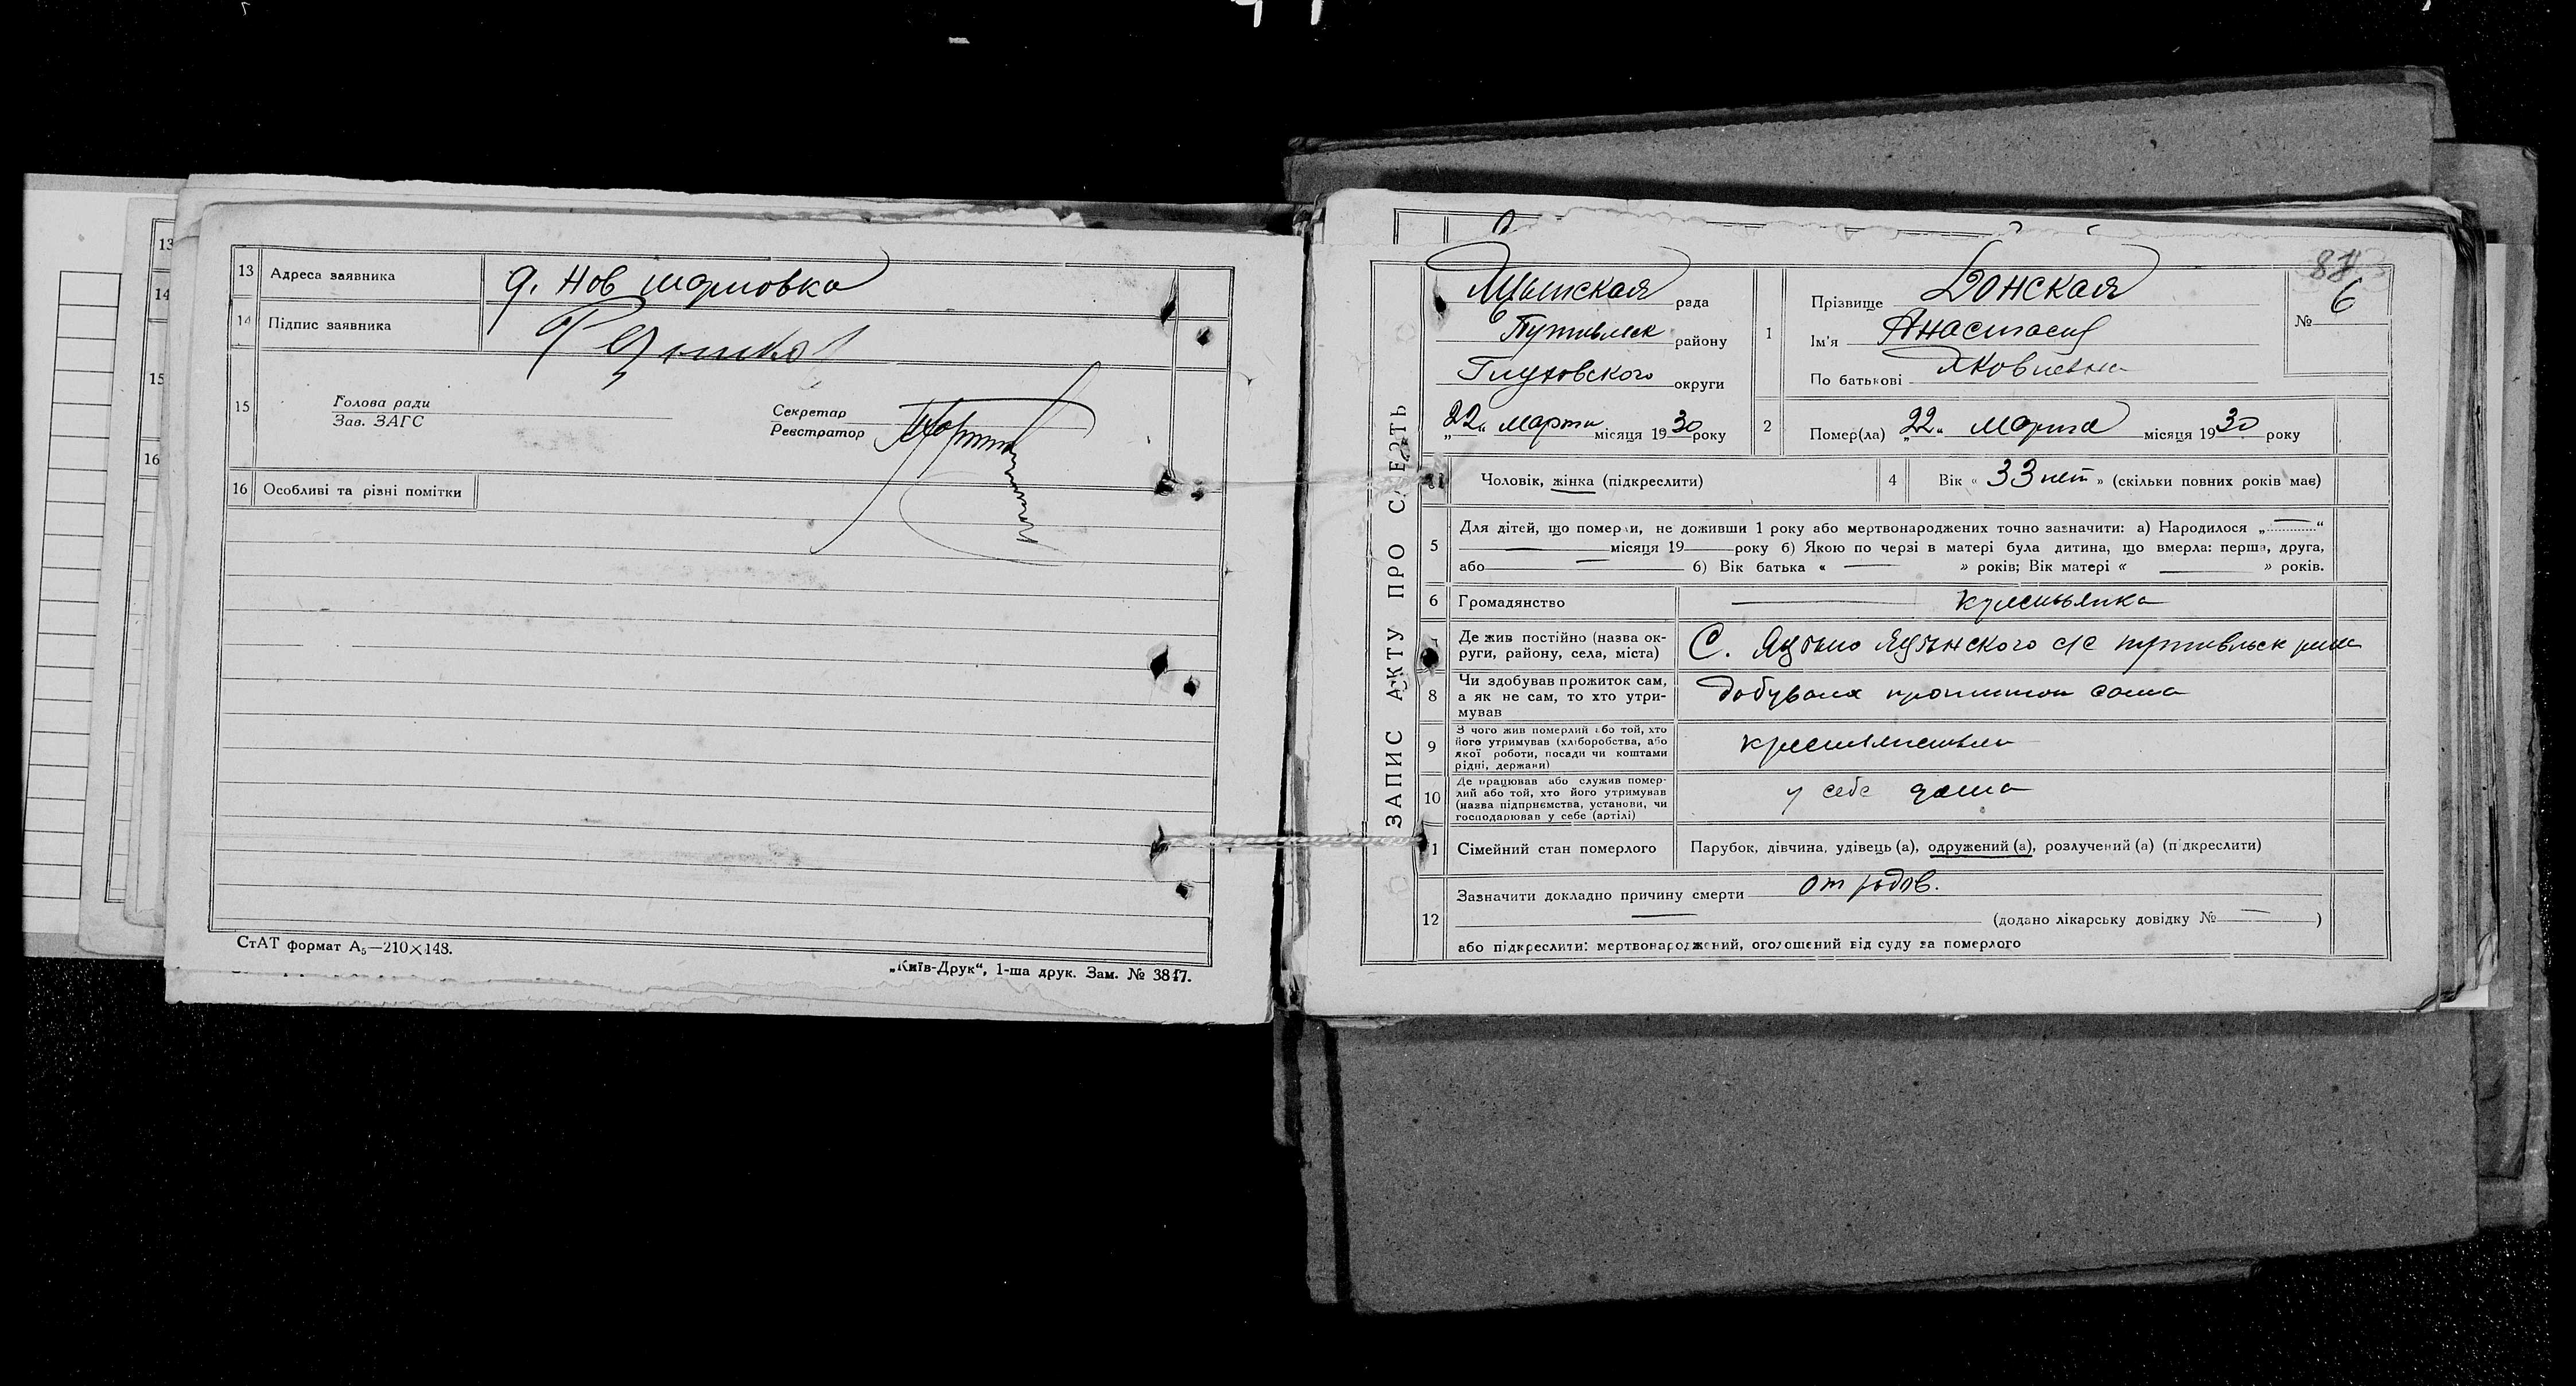 13 Адреса заявника д. Нов Шарповка
14 Підпис заявника
15 Голова ради
Зав. ЗАГС
Секретар
Реєстратор
16 Особливі та різні помітки
СтАТ формат А₅—210×148.
„Київ-Друк“, 1-ша друк. Зам. № 3817.
13
14
15
16
ЗАПИС АКТУ ПРО СМЕРТЬ
рада
Путивльск району
Глуховского округи
„22“ марта місяця 1930 року
1 Прізвище Донская
Ім'я Анастасия
По батькові Яковлевна
№ 6
2 Помер(ла) „22“ Марта місяця 1930 року
Чоловік, жінка (підкреслити)
4 Вік « 33 лет » (скільки повних років має)
5 Для дітей, що померли, не доживши 1 року або мертвонароджених точно зазначити: а) Народилося „ — “
— місяця 19— року б) Якою по черзі в матері була дитина, що вмерла: перша, друга,
або — б) Вік батька « — » років; Вік матері « — » років.
6 Громадянство — крестьянка
Де жив постійно (назва ок-
руги, району, села, міста) С. Яцыно Яцынского с/с путивльск
8 Чи здобував прожиток сам,
а як не сам, то хто утри-
мував добувала сама
9 З чого жив померлий або той, хто
його утримував (хліборобства, або
якої роботи, посади чи коштами
рідні, держави)
10 Де працював або служив помер-
лий або той, хто його утримував
(назва підприємства, установи, чи
господарював у себе (артілі) у себе дома
11 Сімейний стан померлого Парубок, дівчина, удівець (а), одружений (а), розлучений (а) (підкреслити)
12 Зазначити докладно причину смерти от родов.
— (додано лікарську довідку № — )
або підкреслити: мертвонароджений, оголошений від суду за померлого